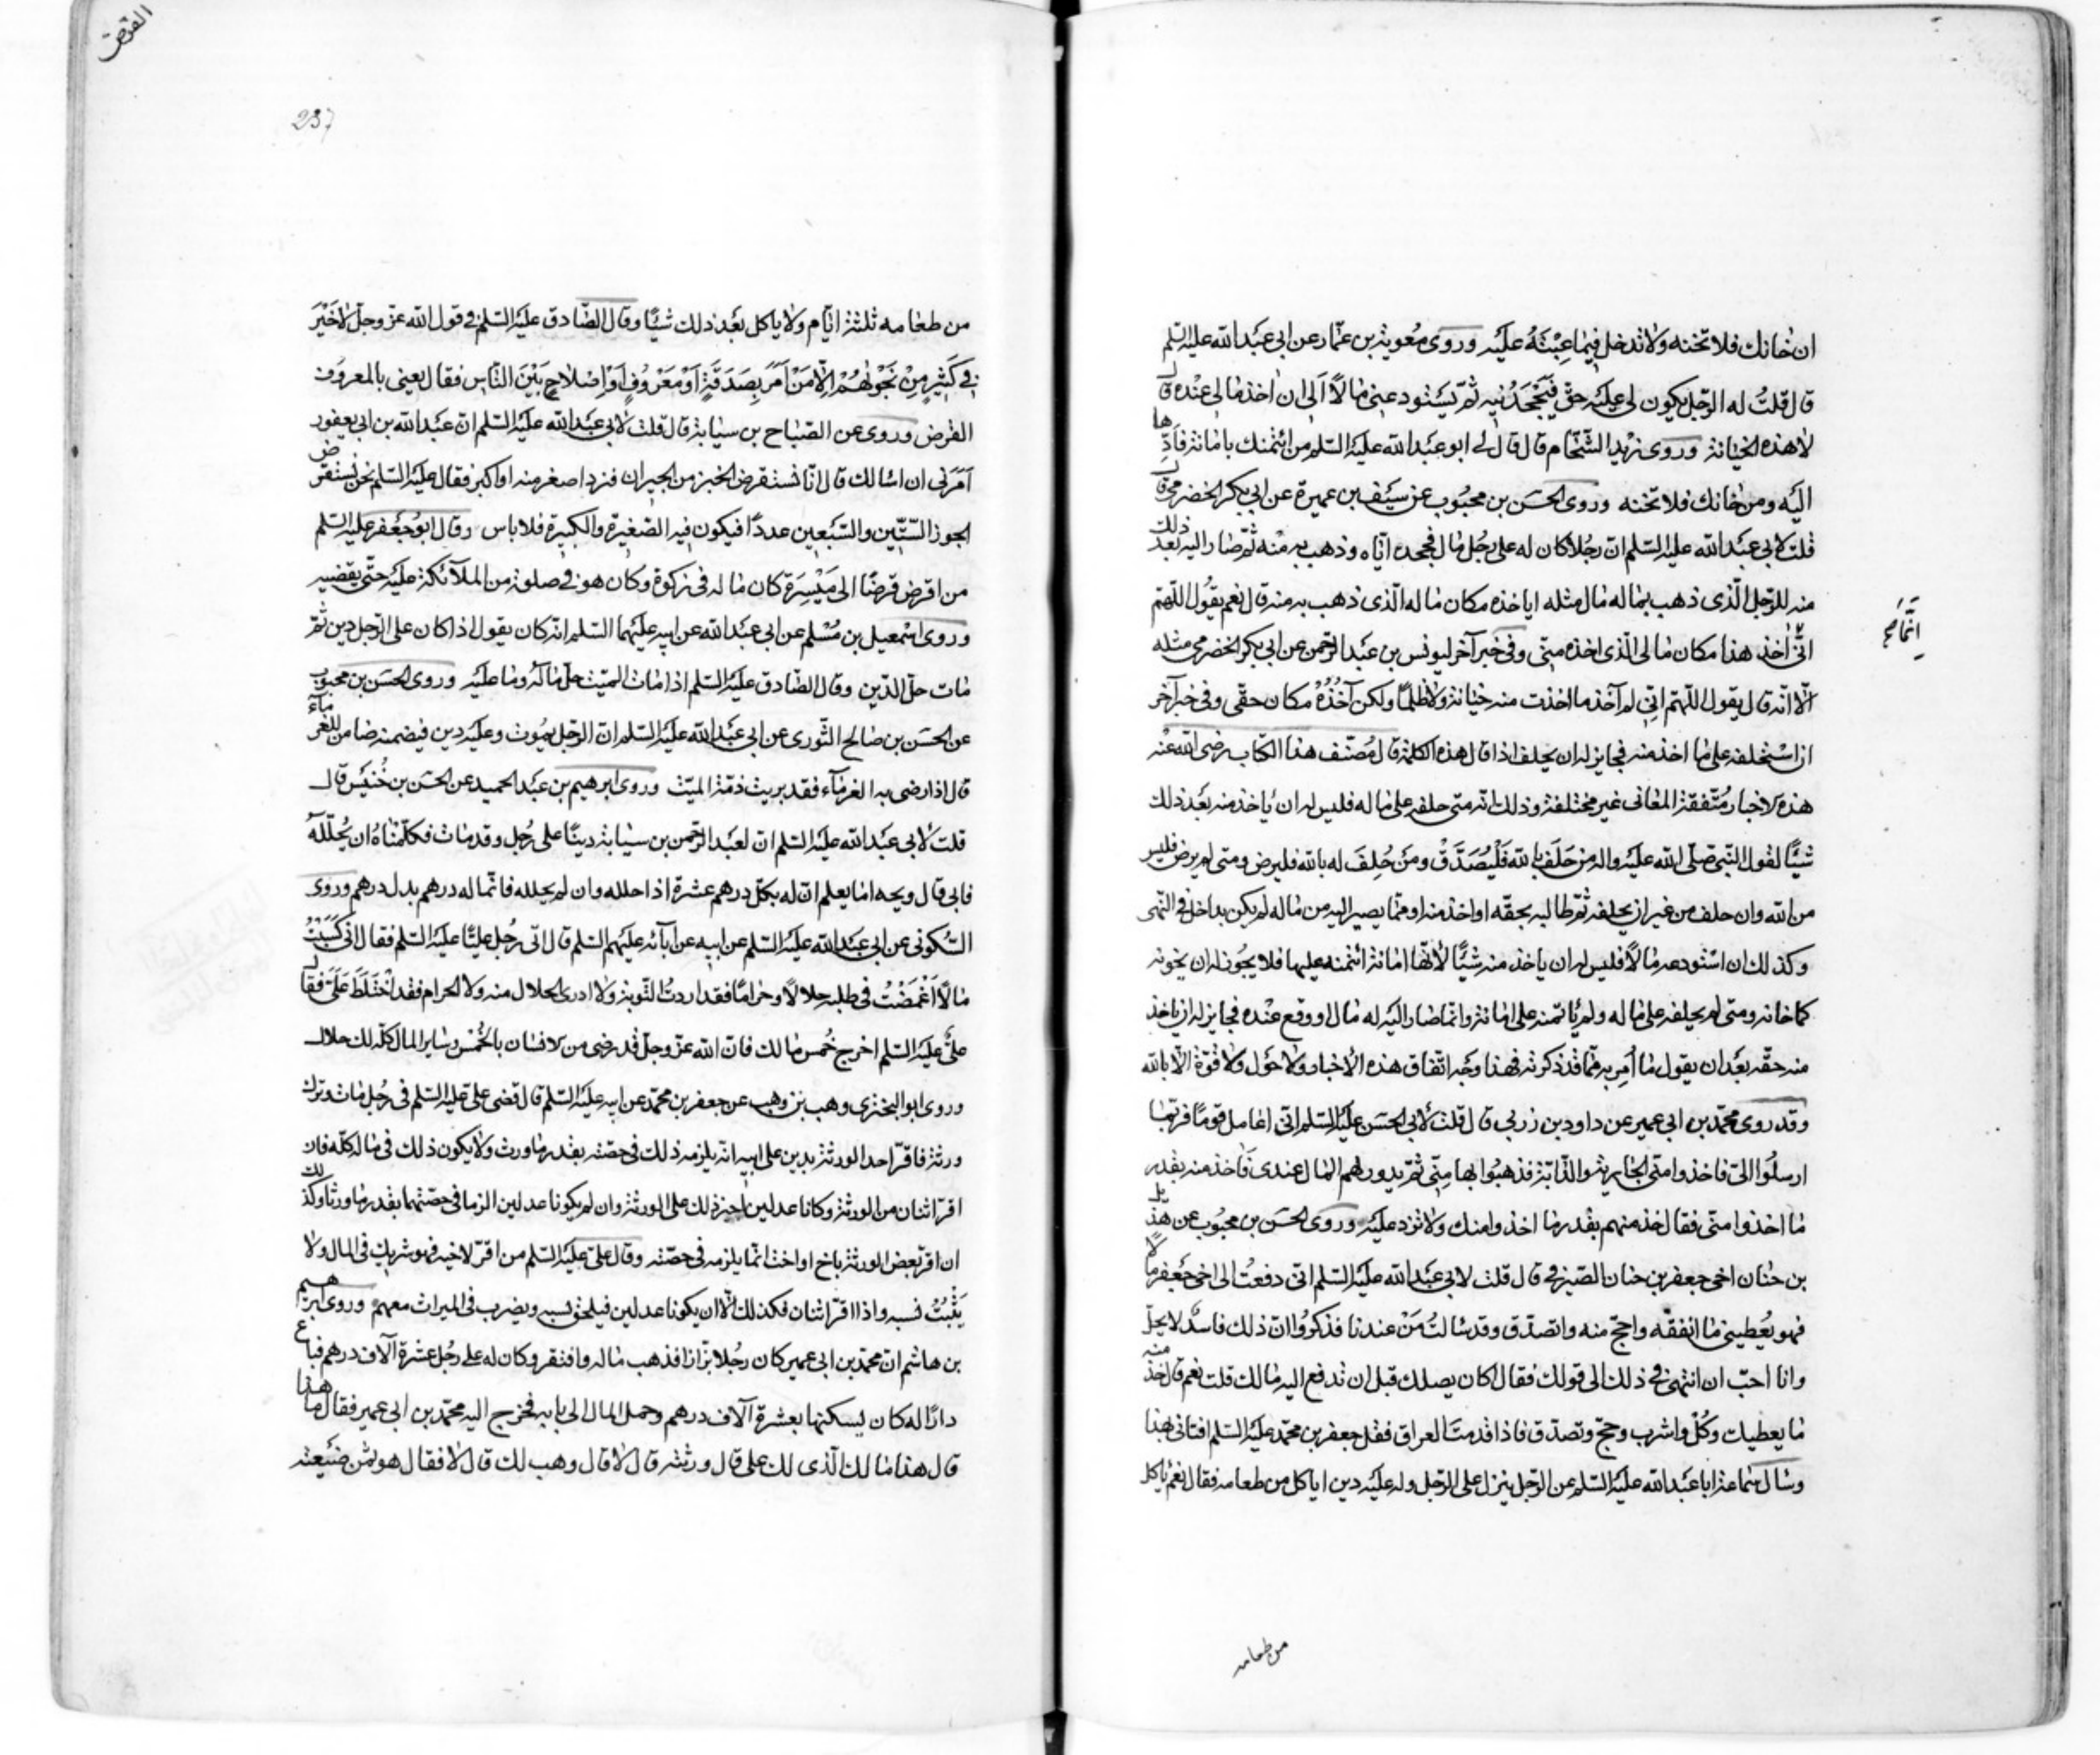 ان خانك فلا تخنه ولا تدخل فيما عبته عليه وروى معوية بن عمار عن ابي عبد الله عليه السلم
قال قلت له الرجل يكون لي عليه حق فيجحدنيه ثم يستودعني مالا ألي ان اخذ مالي عنده قال
لا هذه الخيانة وروى زيد الشحام قال قال لي ابو عبد الله عليه السلم من ائتمنك بامانة فادها
اليه ومن خانك فلا تخنه وروى الحسن بن محبوب عن سيف بن عميرة عن ابي بكر الحضرمي قال
قلت لابي عبد الله عليه السلم ان رجلا كان له على رجل مال فجحده اياه وذهب به منه ثم صار اليه بعد ذلك
منه للرجل الذي ذهب بماله مال مثله اياخذه مكان ماله الذي ذهب به منه قال نعم يقول اللهم
اني آخذ هذا مكان مالي الذي اخذه مني وفي خبر آخر ليونس بن عبد الرحمن عن ابي بكر الحضرمي مثله
الا انه قال يقول اللهم اني لم آخذ ما اخذت منه خيانة ولا ظلما ولكن آخذه مكان حقي وفي خبر آخر
ان استحلفه على ما اخذ منه فجايز له ان يحلف اذا قال هذه الكلمة قال مصنف هذا الكتاب رضي الله عنه
هذه الاخبار متفقة المعاني غير مختلفة وذلك انه متى حلفه على ماله فليس له ان ياخذ منه بعد ذلك
شيئا لقول النبي صلى الله عليه واله من حلف بالله فليصدق ومن حلف له بالله فليرض ومتى لم يرض فليس
من الله وان حلف من غير ان يحلفه ثم طالبه بحقه او اخذ منه او مما يصير اليه من ماله لم يكن بداخل في النهى
وكذلك ان استودعه مالا فليس له ان ياخذ منه شيئا لانها امانة ائتمنه عليها فلا يجوز له ان يخونه
كما خانه ومتى لم يحلفه على ماله ولم ياتمنه على امانة وانما صار اليه له مال او وقع عنده فجايز له ان ياخذ
منه حقه بعد ان يقول ما أمر به مما قد ذكرته فهذا وجه اتفاق هذه الاخبار ولا حول ولا قوة الا بالله
وقد روى محمد بن ابي عمير عن داود بن زربي قال قلت لابي الحسن عليه السلم اني اعامل قوما فربما
ارسلوا الي فاخذوا مني الجارية والدابة فذهبوا بها مني ثم يدور لهم المال عندي فآخذ منه بقدر
ما اخذوا مني فقال خذ منهم بقدر ما اخذوا منك ولا تزد عليه وروى الحسن بن محبوب عن هذيل
بن حنان اخي جعفر بن حنان الصيرفي قال قلت لابي عبد الله عليه السلم اني دفعت الى اخي جعفر مالا
فهو يعطيني ما انفقه واحج منه واتصدق وقد سالت من عندنا فذكروا ان ذلك فاسد لا يحل
وانا احب ان انتهى في ذلك الى قولك فقال اكان يصلك قبل ان تدفع اليه مالك قلت نعم قال خذ منه
ما يعطيك وكل واشرب وحج وتصدق فاذا قدمت العراق فقل جعفر بن محمد عليه السلم افتاني بهذا
وسال سماعة ابا عبد الله عليه السلم عن الرجل ينزل على الرجل وله عليه دين ايأكل من طعامه فقال نعم ياكل
من طعامه
القرض
237
من طعامه ثلثة ايام ولا ياكل بعد ذلك شيئا وقال الصادق عليه السلم في قول الله عز وجل لا خير
في كثير من نجويهم الا من امر بصدقة او معروف او اصلاح بين الناس فقال يعني بالمعروف
القرض وروى عن الصباح بن سيابة قال قلت لابي عبد الله عليه السلم ان عبد الله بن ابي يعفور
امرني ان اسالك قال انا نستقرض الخبز من الجيران فنرد اصغر منه او اكبر فقال عليه السلم نحن نستقرض
الجوز الستين والسبعين عددا فيكون فيه الصغيرة والكبيرة فلا باس وقال ابو جعفر عليه السلم
من اقرض قرضا الى ميسرة كان ماله في زكوة وكان هو في صلوة من الملآئكة عليه حتى يقضيه
وروى اسمعيل بن مسلم عن ابي عبد الله عن ابيه عليهما السلم انه كان يقول اذا كان على الرجل دين ثم
مات حل الدين وقال الصادق عليه السلم اذا مات الميت حل ماله وما عليه وروى الحسن بن محبوب
عن الحسن بن صالح الثوري عن ابي عبد الله عليه السلم ان الرجل يموت وعليه دين فيضمنه ضامن للغرماء
قال اذا رضى به الغرمآء فقد بريت ذمة الميت وروى ابرهيم بن عبد الحميد عن الحسن بن خنيس قال
قلت لابي عبد الله عليه السلم ان لعبد الرحمن بن سيابة دينا على رجل وقد مات فكلمناه ان يحلله
فابى قال ويحه اما يعلم ان له بكل درهم عشرة اذا حلله وان لم يحلله فانما له درهم بدل درهم وروى
السكوني عن ابي عبد الله عليه السلم عن ابيه عن آبائه عليهم السلم قال اتى رجل عليا عليه السلم فقال اني كسبت
مالا اغمضت في طلبه حلالا وحراما فقد اردت التوبة ولا ادري الحلال منه ولا الحرام فقد اختلط علي فقال
علي عليه السلم اخرج خمس مالك فان الله عز وجل قد رضى من الانسان بالخمس وساير المال كله لك حلال
وروى ابو البختري وهب بن وهب عن جعفر بن محمد عن ابيه عليه السلم قال قضى علي عليه السلم في رجل مات وترك
ورثة فاقر احد الورثة بدين على ابيه انه يلزمه ذلك في حصته بقدر ما ورث ولا يكون ذلك في ماله كله فان
اقر اثنان من الورثة وكانا عدلين اجيز ذلك على الورثة وان لم يكونا عدلين الزما في حصتهما بقدر ما ورثا وكذلك
ان اقر بعض الورثة باخ او اخت انما يلزمه في حصته وقال علي عليه السلم من اقر لاخيه فهو شريك في المال ولا
يثبت نسبه واذا اقر اثنان فكذلك الا ان يكونا عدلين فيلحق نسبه ويضرب في الميراث معهم وروى ابرهيم
بن هاشم ان محمد بن ابي عمير كان رجلا بزازا فذهب ماله وافتقر وكان له على رجل عشرة آلاف درهم فباع
دارا له كان يسكنها بعشرة آلاف درهم وحمل المال الى بابه فخرج اليه محمد بن ابي عمير فقال ما هذا
قال هذا مالك الذي لك علي قال ورثته قال لا قال وهب لك قال لا فقال هو ثمن ضيعته